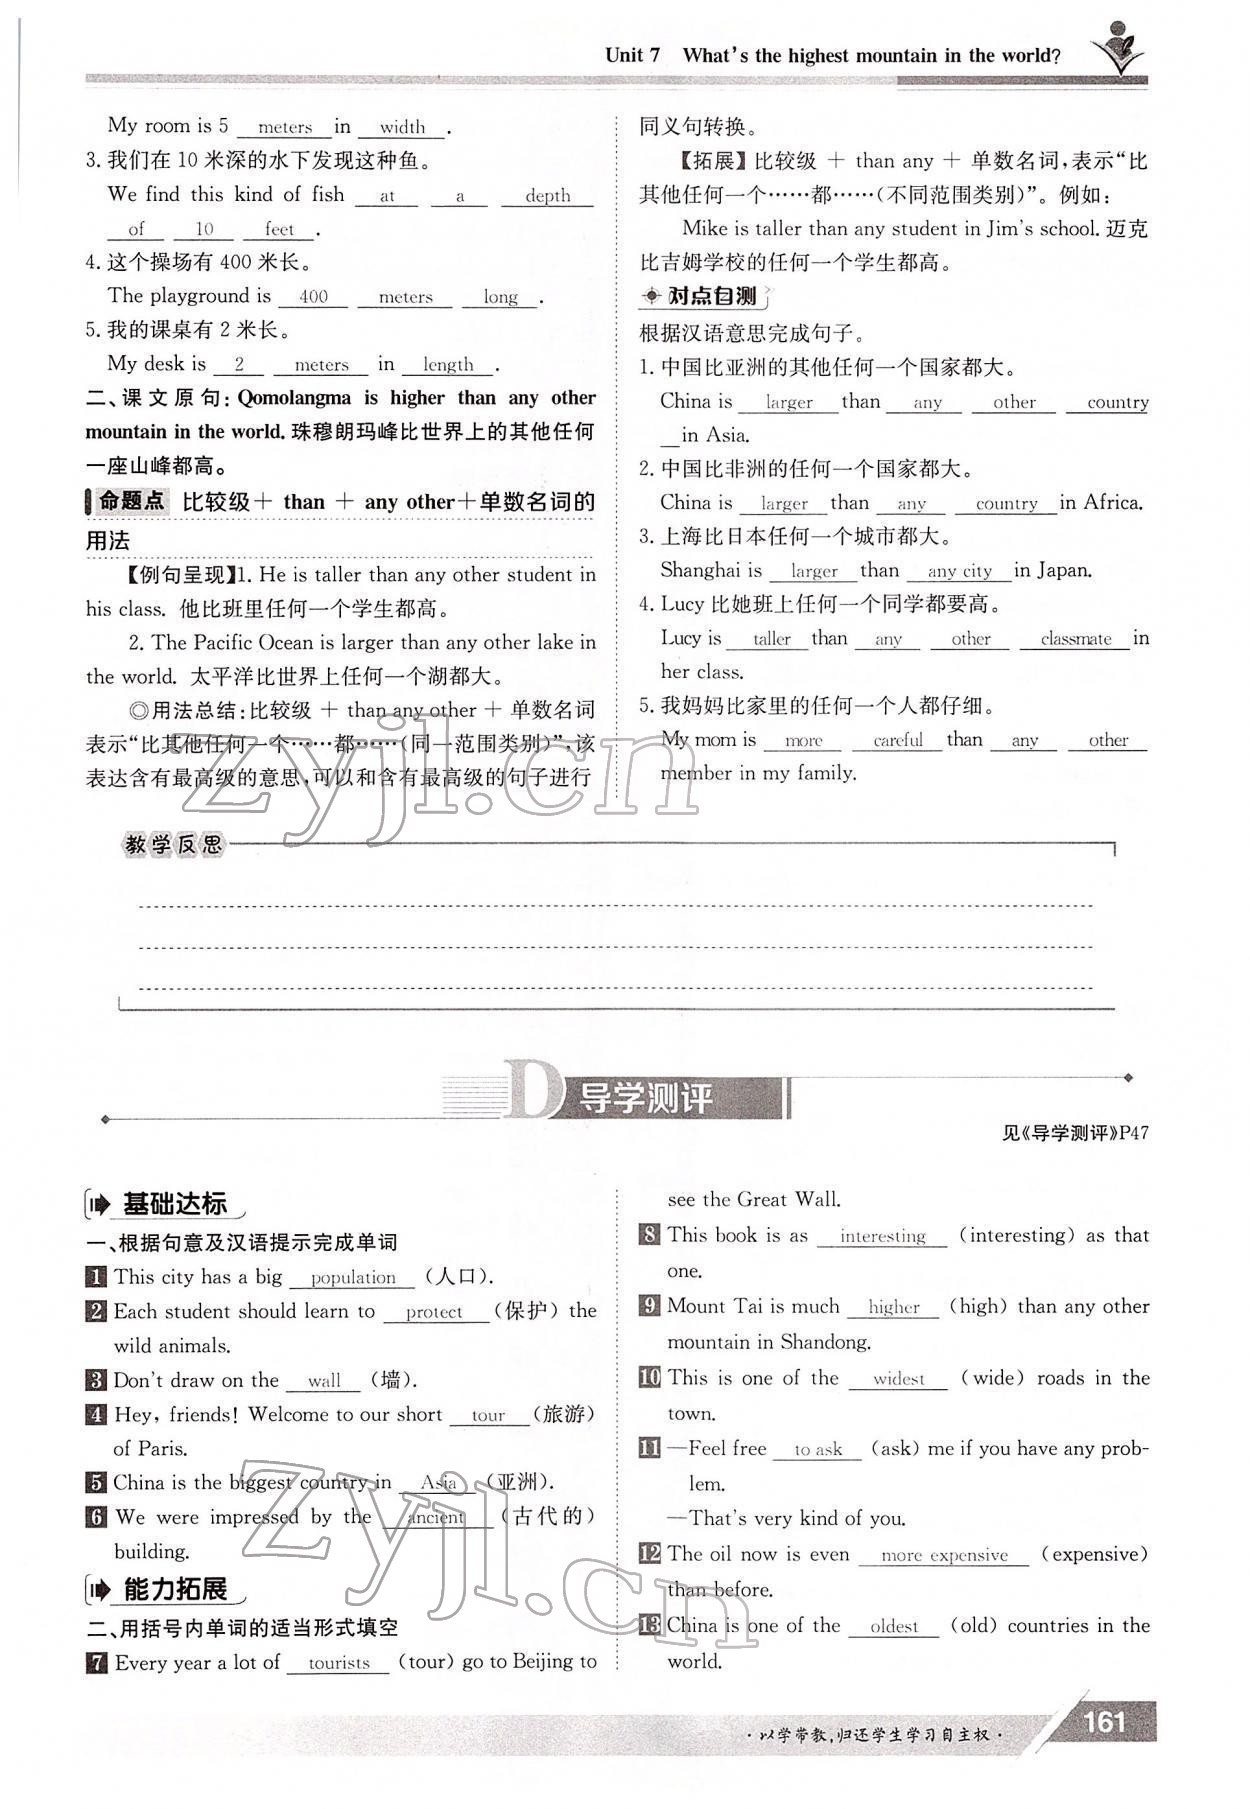 Unit 7 What's the highest mountain in the world?
My room is 5 meters in width .
3. 我们在 10 米深的水下发现这种鱼。
We find this kind of fish at a depth
of 10 feet .
4. 这个操场有 400 米长。
The playground is 400 meters long .
5. 我的课桌有 2 米长。
My desk is 2 meters in length .
二、课文原句: Qomolangma is higher than any other
mountain in the world. 珠穆朗玛峰比世界上的其他任何
一座山峰都高。
命题点 比较级+ than + any other+单数名词的
用法
【例句呈现】1. He is taller than any other student in
his class. 他比班里任何一个学生都高。
2. The Pacific Ocean is larger than any other lake in
the world. 太平洋比世界上任何一个湖都大。
◎用法总结:比较级 + than any other + 单数名词
表示“比其他任何一个……都……(同一范围类别)”,该
表达含有最高级的意思,可以和含有最高级的句子进行
同义句转换。
【拓展】比较级 + than any + 单数名词,表示“比
其他任何一个……都……(不同范围类别)”。例如:
Mike is taller than any student in Jim's school. 迈克
比吉姆学校的任何一个学生都高。
对点自测
根据汉语意思完成句子。
1. 中国比亚洲的其他任何一个国家都大。
China is larger than any other country
in Asia.
2. 中国比非洲的任何一个国家都大。
China is larger than any country in Africa.
3. 上海比日本任何一个城市都大。
Shanghai is larger than any city in Japan.
4. Lucy 比她班上任何一个同学都要高。
Lucy is taller than any other classmate in
her class.
5. 我妈妈比家里的任何一个人都仔细。
My mom is more careful than any other
member in my family.
教学反思
D 导学测评
见《导学测评》P47
基础达标
一、根据句意及汉语提示完成单词
1 This city has a big population (人口).
2 Each student should learn to protect (保护) the
wild animals.
3 Don't draw on the wall (墙).
4 Hey, friends! Welcome to our short tour (旅游)
of Paris.
5 China is the biggest country in Asia (亚洲).
6 We were impressed by the ancient (古代的)
building.
能力拓展
二、用括号内单词的适当形式填空
7 Every year a lot of tourists (tour) go to Beijing to
see the Great Wall.
8 This book is as interesting (interesting) as that
one.
9 Mount Tai is much higher (high) than any other
mountain in Shandong.
10 This is one of the widest (wide) roads in the
town.
11 —Feel free to ask (ask) me if you have any prob-
lem.
—That's very kind of you.
12 The oil now is even more expensive (expensive)
than before.
13 China is one of the oldest (old) countries in the
world.
·以学带教,归还学生学习自主权·
161
zyjl.cn
zyjl.cn